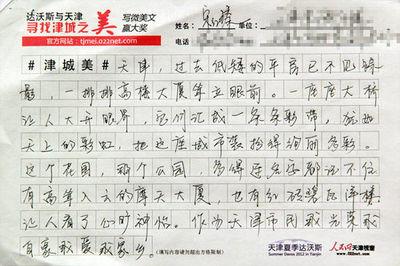 达沃斯与天津
寻找津城之美
官方网站：tjmei.022net.com
写微美文
赢大奖
姓名：
单位：
电话
#津城美#天津，过去低矮的平房已不见踪
影，一排排高楼大厦耸立眼前。一座座大桥
让人大开眼界，它们汇成一条条彩带，犹如
天上的彩虹，把这座城市装扮得绚丽多彩。
这个花园，那个公园，多得连名字都记不住
有高耸入云的摩天大厦，也有红砖碧瓦洋楼
让人有了心旷神怡。作为天津市民我光荣我
自豪我爱我家乡。
（填写内容请勿超出方格限制）
天津夏季达沃斯
Summer Davos 2012 in Tianjin
人民网 天津视窗
www.022net.com